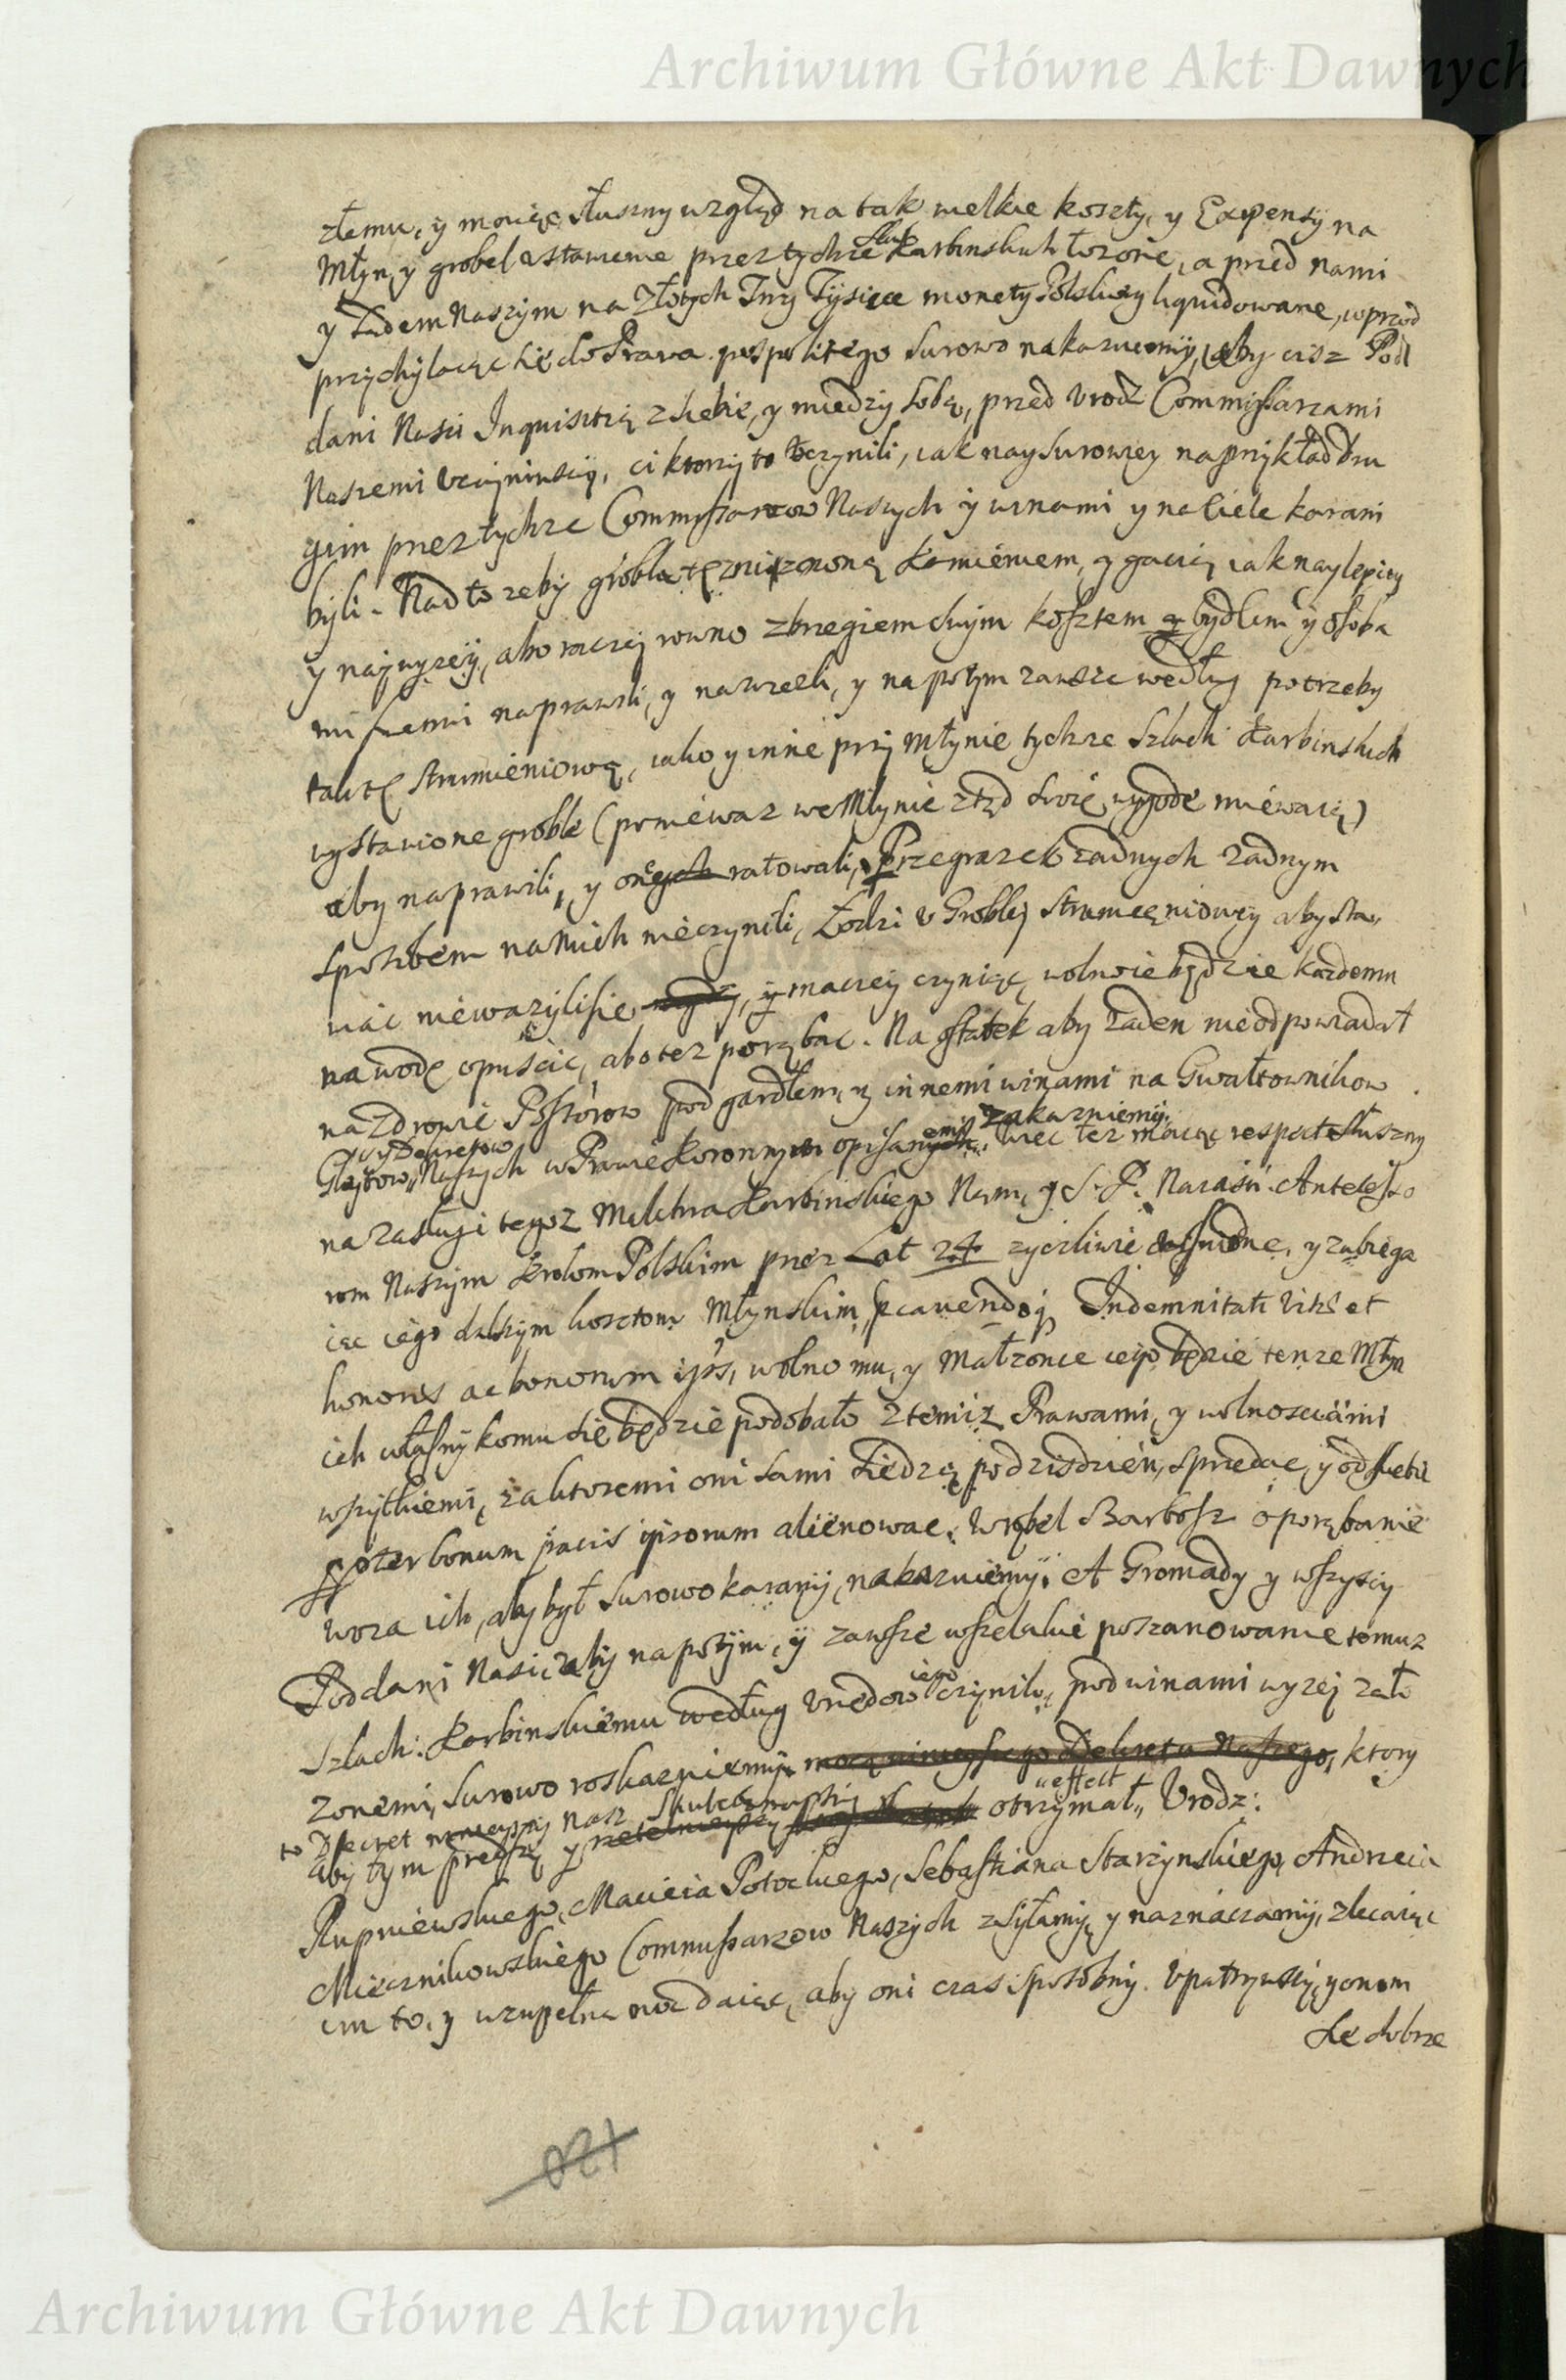 Archiwum Główne Akt Dawnych
złemu, y maiąc słuszny wzgląd na tak wielkie koszty, y Expensy na
Młyn, y grobel wstawienie przez tychze Szlach Karbinskich łozone, a przed nami
y Sądem Naszym na Złotych Trzy Tysiące monety Polskiey liquidowane, wprzod
przychylaiąc się do Prawa pospolitego surowo nakazuiemy, aby cisz Pod
dani Nasii Inquisitią z siebie, y miedzy sobą, przed Vrodz Commissarzami
Naszemi vczyniwszy, ci ktorzy to vczynili, iak naysurowiey na przykład dru
gim przez tychze Commissarzow Naszych y winami y na ciele karani
byli. Nad to zeby groblą tę zniszczoną kamieniem, y gacią iak naylepiey
y naywyzey, abo raczej rowno z brzegiem swym kosztem y bydłem y osoba
mi swemi naprawili, y nawiezli, y napotym zawsze według potrzeby
tak tę strumieniową, iako y inne przy Młynie tychze Szlach Karbinskich
wystawione groble (poniewaz we Młynie ztąd swoię wygodę miewaią)
aby naprawili, y onych ratowali, Przegrazek zadnych zadnym
sposobem na nich nie czynili, Łodzi v Groblej Strumieniowey aby sta,,
wiac nie wazyli sie, y inaczey czyniąc wolno ie będzie kazdemu
na wodę opuscic, abo tez porąbac. Na ostatek aby zaden nie odpowiadał
na Zdrowie Postorow pod gardłem, y innemi winami na Gwałtownikow
czy Dekretow emi zakazuiemy.
Glejtow Naszych w Prawie Koronnym opisanych. Wiec tez maiąc respect słuszny
na zasługi tegoz Melchra Karbinskiego Nam, y S. P. Naiaśń. Antecesso
rom Naszym Krolom Polskim przez Lat 24 zyczliwie wyswiadczone, y zabiega
iąc iego dalszym kosztom Młynskim, cavendoq Indemnitati vitæ et
honoris ac bonorum ipsis, wolno mu, y Małzonce iego będzie tenze Młyn
ich własny komu się będzie podobało z temiz Prawami, y wolnosciami
wszytkiemi, za ktoremi oni sami siedzą po dzisdzien, sprzedac, y od siebie
propter bonum pacis ipsorum alienowac. Wrobel Bartosz o porąbanie
woza ich, aby był surowo karany, nakazuiemy. A Gromady y wszyscy
Poddani Nasi, aby napotym, y zawsze wszelakie poszanowanie temuz
Szlach: Karbinskiemu według vrzedow iego czynili, pod winami wyzej zało
zonemi, surowo roskazuiemy. mocą ninieyszego Dekretu Naszego, ktory
to Decret ninieyszy Nasz skutecznieyszy
aby tym prędszy y rzetelnieyszy effect otrzymał,, Vrodz:
Rupniewskiego, Macieia Potockiego, Sebastiana Starzynskiego, Andrzeia
Miecznikowskiego Commissarzow Naszych zsyłamy, y naznaczamy, zlecaiąc
im to, y zupełną moc daiąc, aby oni czas sposobny vpatrzywszy, y onem
się dobrze
Archiwum Główne Akt Dawnych